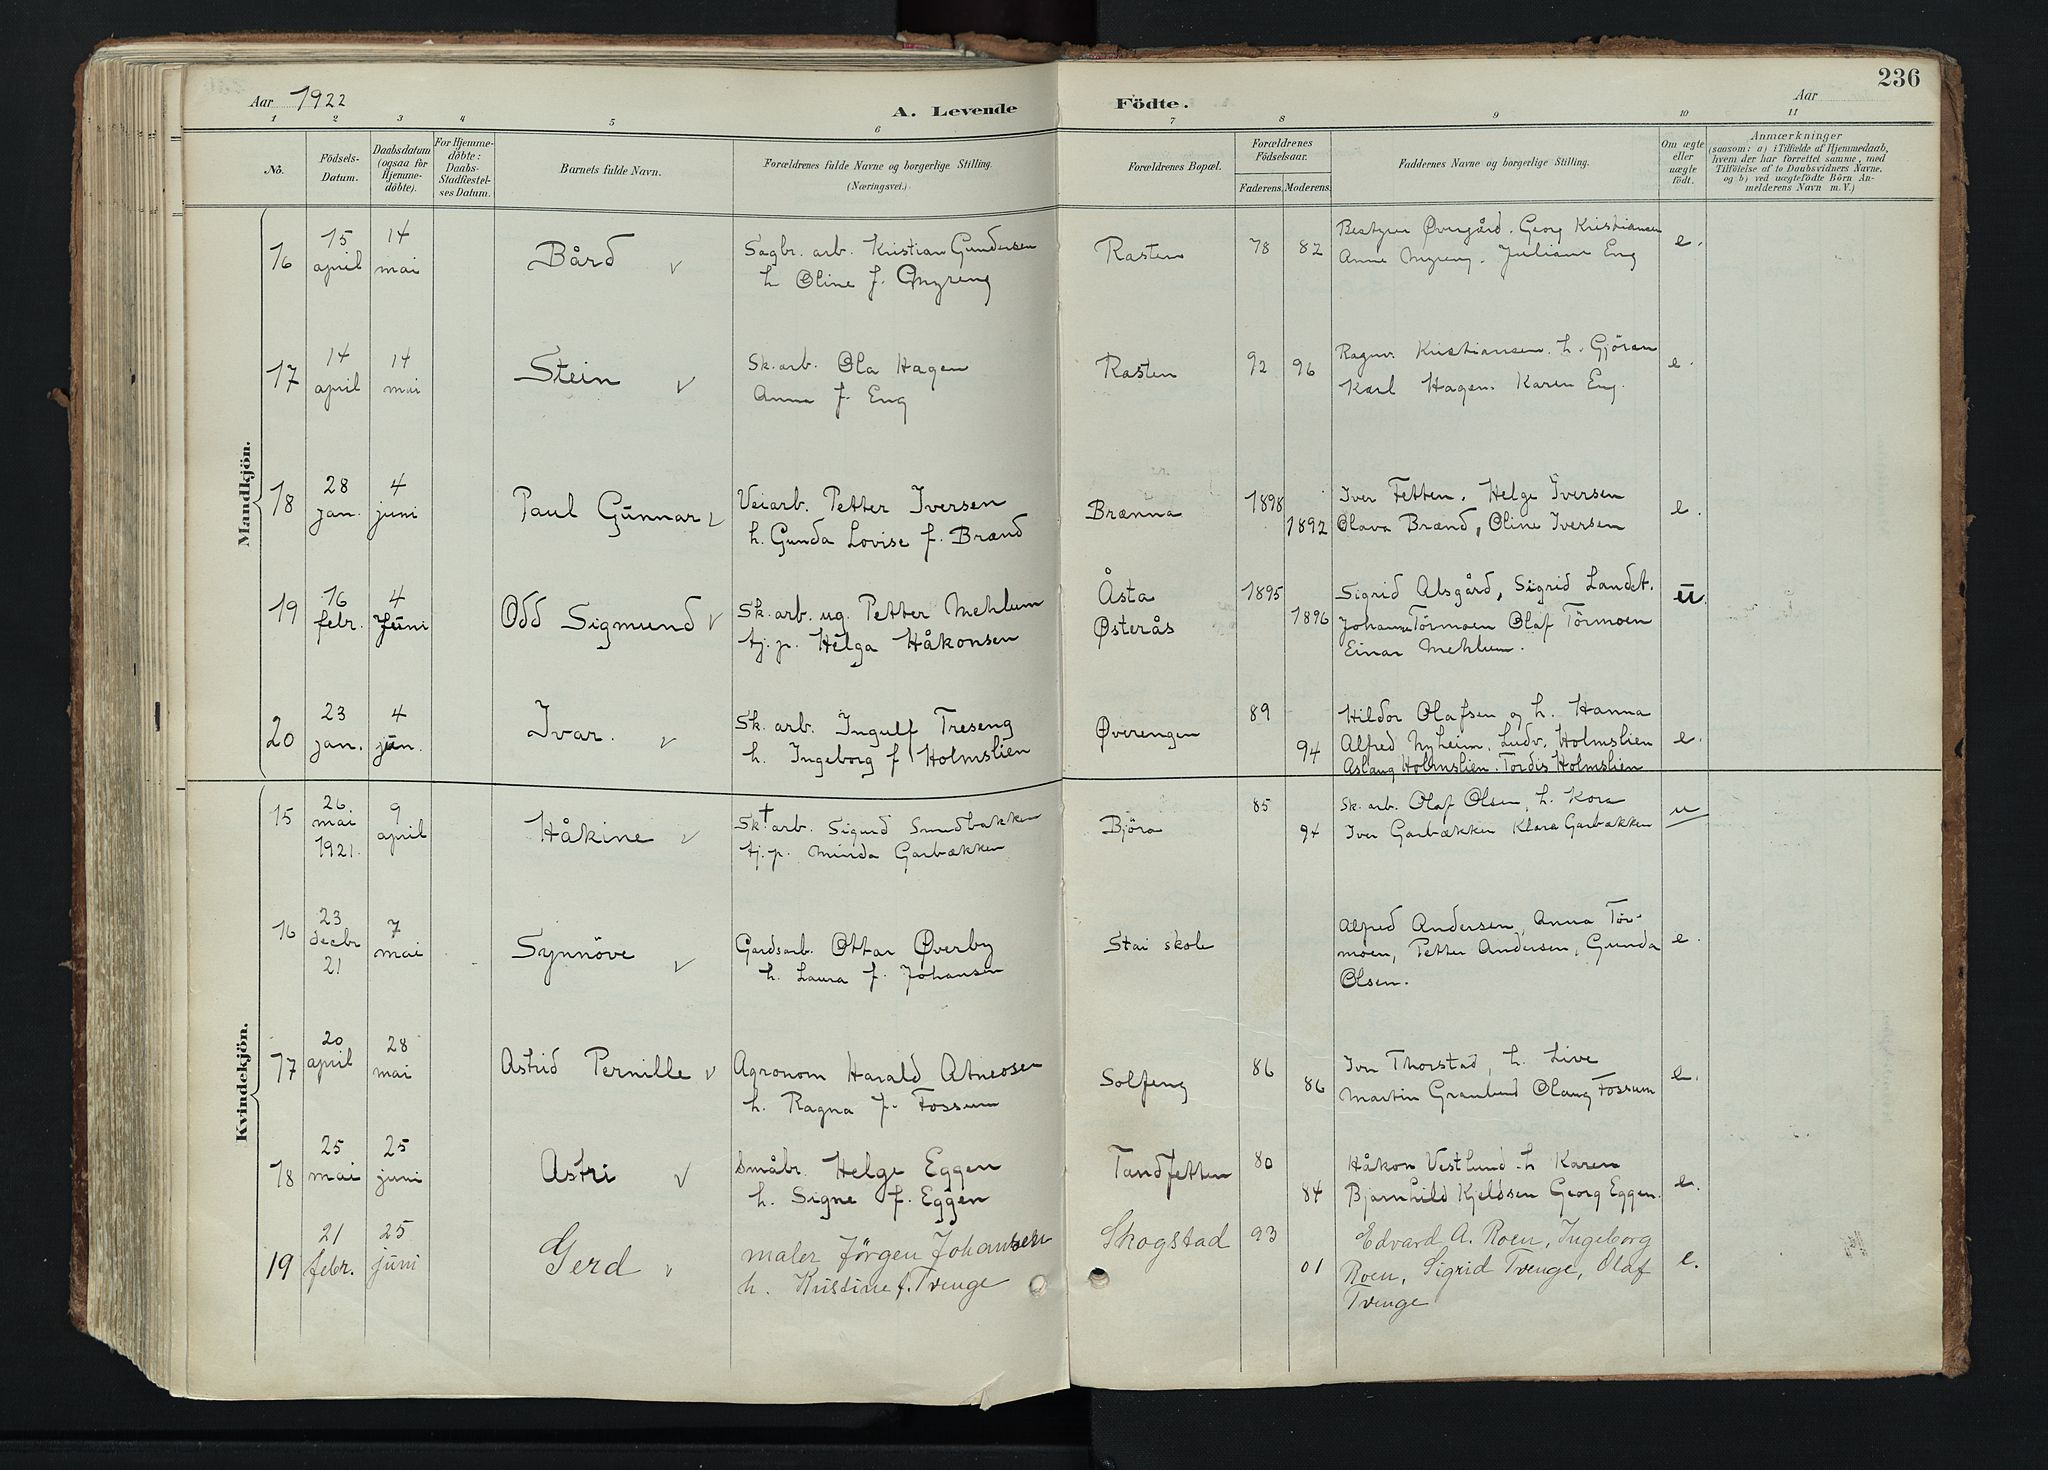 236
Aar 1922
A. Levende Födte.
Aar
1 2 3 4 5 6 7 8 9 10 11
No.
Födsels-
Datum.
Daabsdatum
(ogsaa for
Hjemme-
døbte).
For Hjemme-
döbte:
Daabs-
Stadfæstel-
ses Datum.
Barnets fulde Navn.
Forældrenes fulde Navne og borgerlige Stilling.
(Næringsvei.)
Forældrenes Bopæl.
Forældrenes
Födselsaar.
Faderens. Moderens.
Faddernes Navne og borgerlige Stilling.
Om ægte
eller
uægte
födt.
Anmærkninger
(saasom: a) i Tilfælde af Hjemmedaab,
hvem der har forrettet samme, med
Tilföielse af to Daabsvidners Navne.
og b) ved uægtefödte Börn An-
melderens Navn m. V.)
Mandkjön.
16
15
april
14
mai
Bård
Sagbr. arb. Kristian Gundersen
h Oline f. Myreng
Rasten
78 82
Bestyrer Øvergård. Georg Kristiansen
Anne Myreng. Juliane Eng
e.
17
14
april
14
mai
Stein
Sk. arb. Ola Hagen
Anna f. Eng
Rasten
92 96
Ragnv. Kristiansen. h. Gjöran
Karl Hagen. Karen Eng.
e.
18
28
jan.
4
juni
Paul Gunnar
Veiarb. Petter Iversen
h. Gunda Lovise f. Brænd
Brænna
1898
1892
Iver Fetten. Helge Iversen
Olava Brænd, Oline Iversen
e.
19
16
febr.
4
Juni
Odd Sigmund
Sk. arb. ug. Petter Mehlum
tj. p. Helga Håkonsen
Åsta
Østerås
1895
1896
Sigrid Alsgård, Sigrid Landet.
Johanne Törmoen Olaf Törmoen
Einar Mehlum.
u.
20
23
jan.
4
jun.
Ivar.
Sk. arb. Ingulf Treseng
h. Ingeborg f Holmslien
Øverengen
89
94
Hildor Olafsen og h. Hanna
Alfred Nyheim. Ludv. Holmslien
Aslaug Holmslien. Tordis Holmslien
e.
Kvindekjön.
15
26
mai
1921.
9
april
Håkine
Sk† arb. Sigurd Sundbakken
tj. p. Minda Garbækken
Björa
85
94
Sk. arb. Olaf Olsen, h. Kora
Iver Garbækken Klara Garbækken
u
16
23
decbr
21
7
mai
Synnöve
Gardsarb. Ottar Øverby
h. Laura f. Johansen
Stai skole
Alfred Andersen, Anna Tör-
moen, Petter Andersen, Gunda
Olsen.
e.
17
20
april
28
mai
Astrid Pernille
Agronom Harald Atneosen
h. Ragna f. Fossum
Solfeng
86
86
Ivr Thorstad, h. Live
Martin Granlund Olaug Fossum
e.
18
25
mai
25
juni
Astri
Småbr. Helge Eggen
h. Signe f. Eggen
Tandfetten
80
84
Håkon Vestlund. h Karen
Bjarnhild Kjeldsen Georg Eggen.
e.
19
21
febr.
25
juni
Gerd
maler Jörgen Johansen
h. Kristine f. Tvenge
Skogstad
93
01
Edvard A. Roen, Ingeborg
Roen, Sigrid Tvenge, Olaf
Tvenge
e.